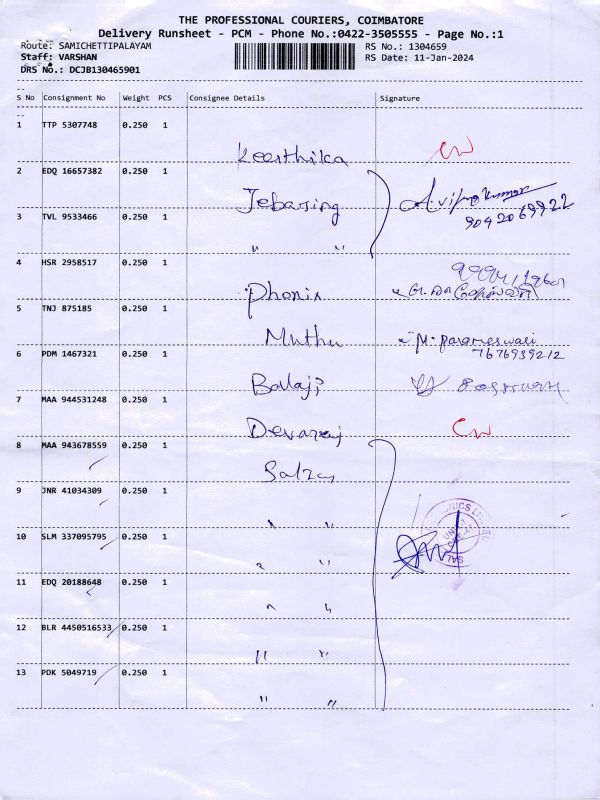 THE PROFESSIONAL COURIERS, COIMBATORE
Delivery Runsheet - PCM - Phone No.:0422-3505555 - Page No.:1
Route: SAMICHETTIPALAYAM RS No.: 1304659
Staff: VARSHAN RS Date: 11-Jan-2024
DRS No.: DCJB130465901
--
S No Consignment No Weight PCS Consignee Details Signature
--
1 TTP 5307748 0.250 1
Keerthika CW
2 EDQ 16657382 0.250 1
Jebasing
9042069922
3 TVL 9533466 0.250 1
" "
4 HSR 2958517 0.250 1
Phonix
5 TNJ 875185 0.250 1
Muthu M. Parameswari
7676939212
6 PDM 1467321 0.250 1
Balaji
7 MAA 944531248 0.250 1
Devaraj CW
8 MAA 943678559 0.250 1
Salzer
9 JNR 41034309 0.250 1
" "
10 SLM 337095795 0.250 1
" "
11 EDQ 20188648 0.250 1
" "
12 BLR 4450516533 0.250 1
" "
13 PDK 5049719 0.250 1
" "